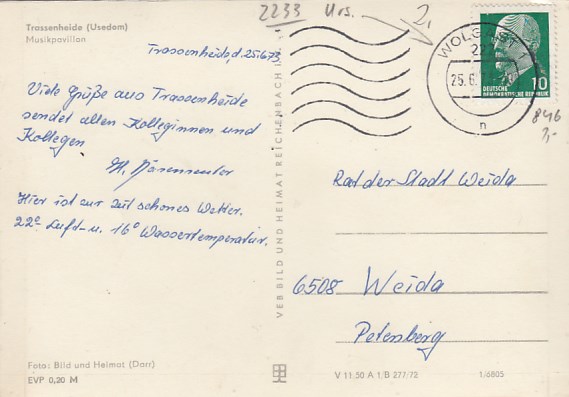 Trassenheide (Usedom)
Musikpavillon
2233 Urs.
2,
Trassenheide, d. 25.6.73
Viele Grüße aus Trassenheide
sendet allen Kolleginnen und
Kollegen
H.
Hier ist zur Zeit schönes Wetter.
22° Luft- u. 16° Wassertemperatur.
Foto: Bild und Heimat (Darr)
EVP 0,20 M
VEB BILD UND HEIMAT REICHENBACH I.
WOLGAST 1
25.6.
n
10
DEUTSCHE
DEMOKRATISCHE REPUBLIK
846
Rat der Stadt Weida
6508 Weida
Petersberg
V 11 50 A 1/B 277/72
1/6805